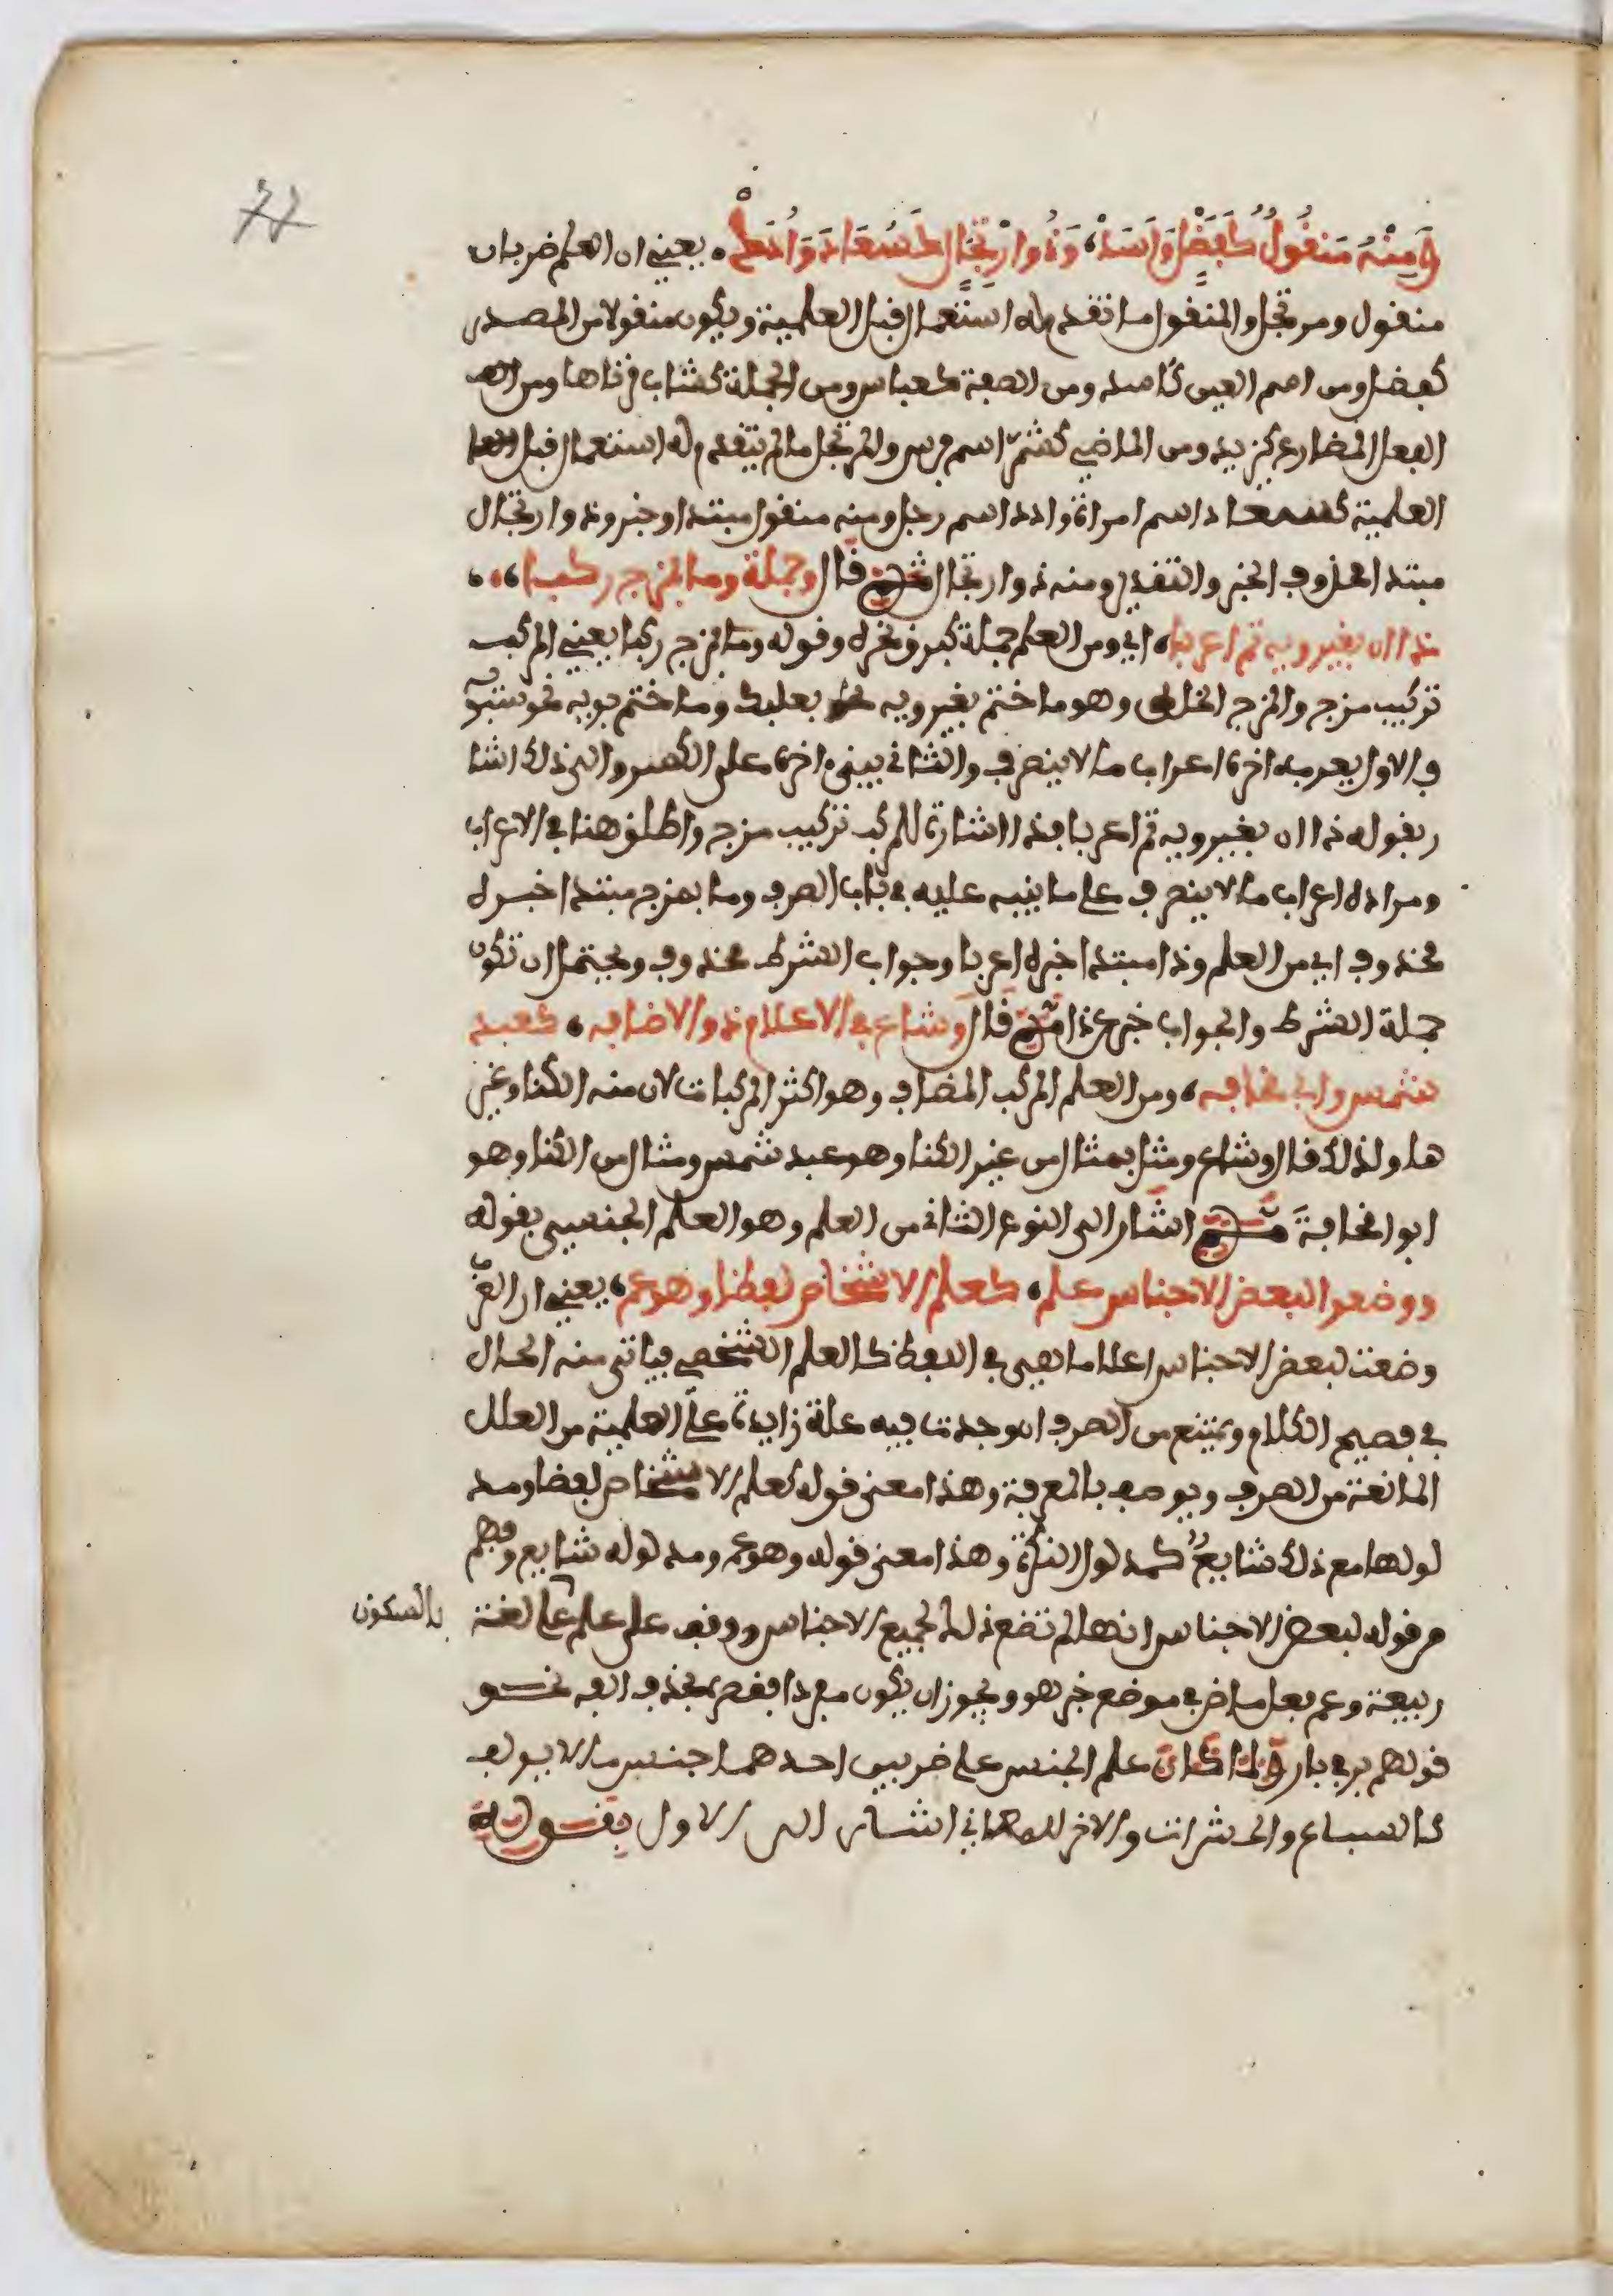 وَمِنْهُ مَنقُولٌ كَفَضْلٍ وَأَسَدْ، وَذُو ارْتِجَالٍ كَسُعَادَ وَأُدَدْ. يعني ان العلم ضربان
منقول ومرتجل والمنقول ما تقدم له استعمال قبل العلمية ويكون منقولا من المصدر
كفضل ومن اسم العين كاسد ومن الصفة كعباس ومن الجملة كشاب قرناها ومن
الفعل المضارع كيزيد ومن الماضي كشمر اسم فرس والمرتجل ما لم يتقدم له استعمال قبل
العلمية كسعاد اسم امراة وادد اسم رجل ومنه منقول مبتدا وخبر وذو ارتجال
مبتدا محذوف الخبر والتقدير ومنه ذو ارتجال ثم قال وجملة وما بمزج ركبا،
ذا ان بغير ويه تم اعربا، اي ومن العلم جملة كبرق نحره وقوله وما بمزج ركبا يعني المركب
تركيب مزج والمزج الخلط وهو ما ختم بغير ويه نحو بعلبك وما ختم بويه نحو سيبويه
فالاول يعرب اخره اعراب ما لا ينصرف والثاني يبنى اخره على الكسر والى ذلك اشا
ر بقوله ذا ان بغير ويه تم اعربا فذا اشارة للمركب تركيب مزج واطلق هنا في الاعراب
ومراده اعراب ما لا ينصرف على ما نبه عليه في باب الصرف وما بمزج مبتدا خبره
محذوف اي من العلم وذا مبتدا خبره اعربا وجواب الشرط محذوف ويحتمل ان تكون
جملة الشرط والجواب خبر عن ذا ثم قال وشاع في الاعلام ذو الاضافه، كعبد
شمس وابي قحافه، ومن العلم المركب المضاف وهو اكثر المركبات لان منه الكنا وغير
ها ولذلك قال وشاع ومثل بمثال من غير الكنا وهو عبد شمس ومثال من الكنا وهو
ابو قحافة ثم اشار الى النوع الثاني من العلم وهو العلم الجنسي بقوله
ووضعوا لبعض الاجناس علم، كعلم الاشخاص لفظا وهو عم، يعني ان العرب
وضعت لبعض الاجناس اعلاما فهي في اللفظ كالعلم الشخصي فياتي منه الحال
في فصيح الكلام ويمتنع من الصرف ان وجدت فيه علة زايدة على العلمية من العلل
المانعة من الصرف ويوصف بالمعرفة وهذا معنى قوله كعلم الاشخاص لفظا ومد
لولها مع ذلك شايع كمدلول النكرة وهذا معنى قوله وهو عم ومدلوله شايع وفهم
من قوله لبعض الاجناس انها لم تضع ذلك لجميع الاجناس ووقف على علم على لغة
بالسكون
ربيعة وعم فعل ماض في موضع خبر هو ويجوز ان يكون مفردا فقصر بحذف الفه نحو
قولهم بر في بار ولما كان علم الجنس على ضربين احدهما جنس ما لا يولف
كالسباع والحشرات والاخر للمعاني اشار الى الاول بقوله